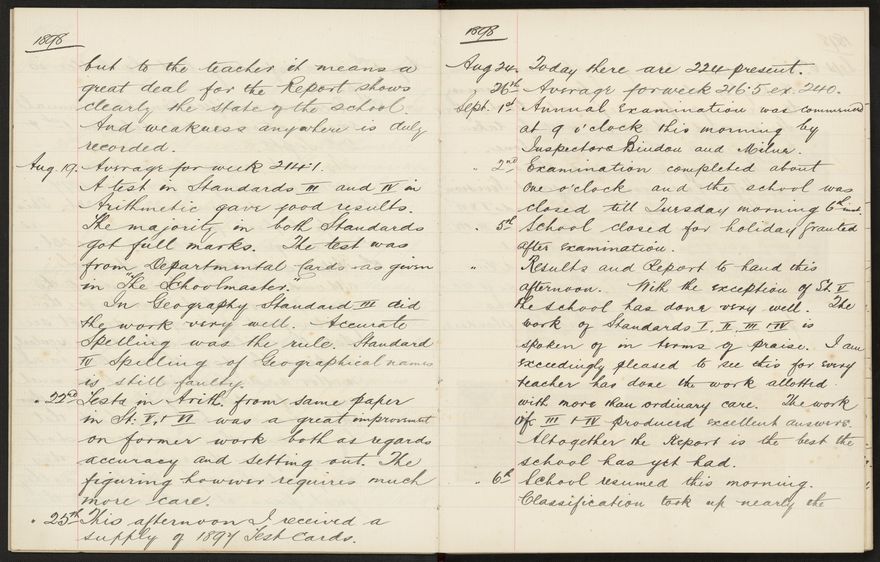 1898
but to the teacher it means a
great deal for the Report shows
clearly the state of the school
And weakness anywhere is duly
recorded.
Aug. 19. Average for week 214.1.
A test in Standards III and IV in
Arithmetic gave good results.
The majority in both Standards
got full marks. The test was
from Departmental Cards as given
in "The Schoolmaster."
In Geography Standard III did
the work very well. Accurate
Spelling was the rule. Standard
IV Spelling of Geographical names
is still faulty.
" 22nd Tests in Arith. from same paper
in St. V, & VI was a great improvement
on former work both as regards
accuracy and setting out. The
figuring however requires much
more care.
" 25th This afternoon I received a
supply of 1897 Test Cards.
1898
Aug 24. Today there are 224 present.
" 26th Average for week 216.5 ex 240.
Sept. 1st Annual Examination was commenced
at 9 o'clock this morning by
Inspectors Bindon and Milner.
" 2nd Examination completed about
one o'clock and the school was
closed till Tuesday morning 6th inst.
" 5th School closed for holiday granted
after examination.
" Results and Report to hand this
afternoon. With the exception of St. V
the school has done very well. The
work of Standards I, II, III & IV is
spoken of in terms of praise. I am
exceedingly pleased to see this for every
teacher has done the work allotted
with more than ordinary care. The work
of III & IV produced excellent answers.
Altogether the Report is the best the
school has yet had.
" 6th School resumed this morning.
Classification took up nearly the